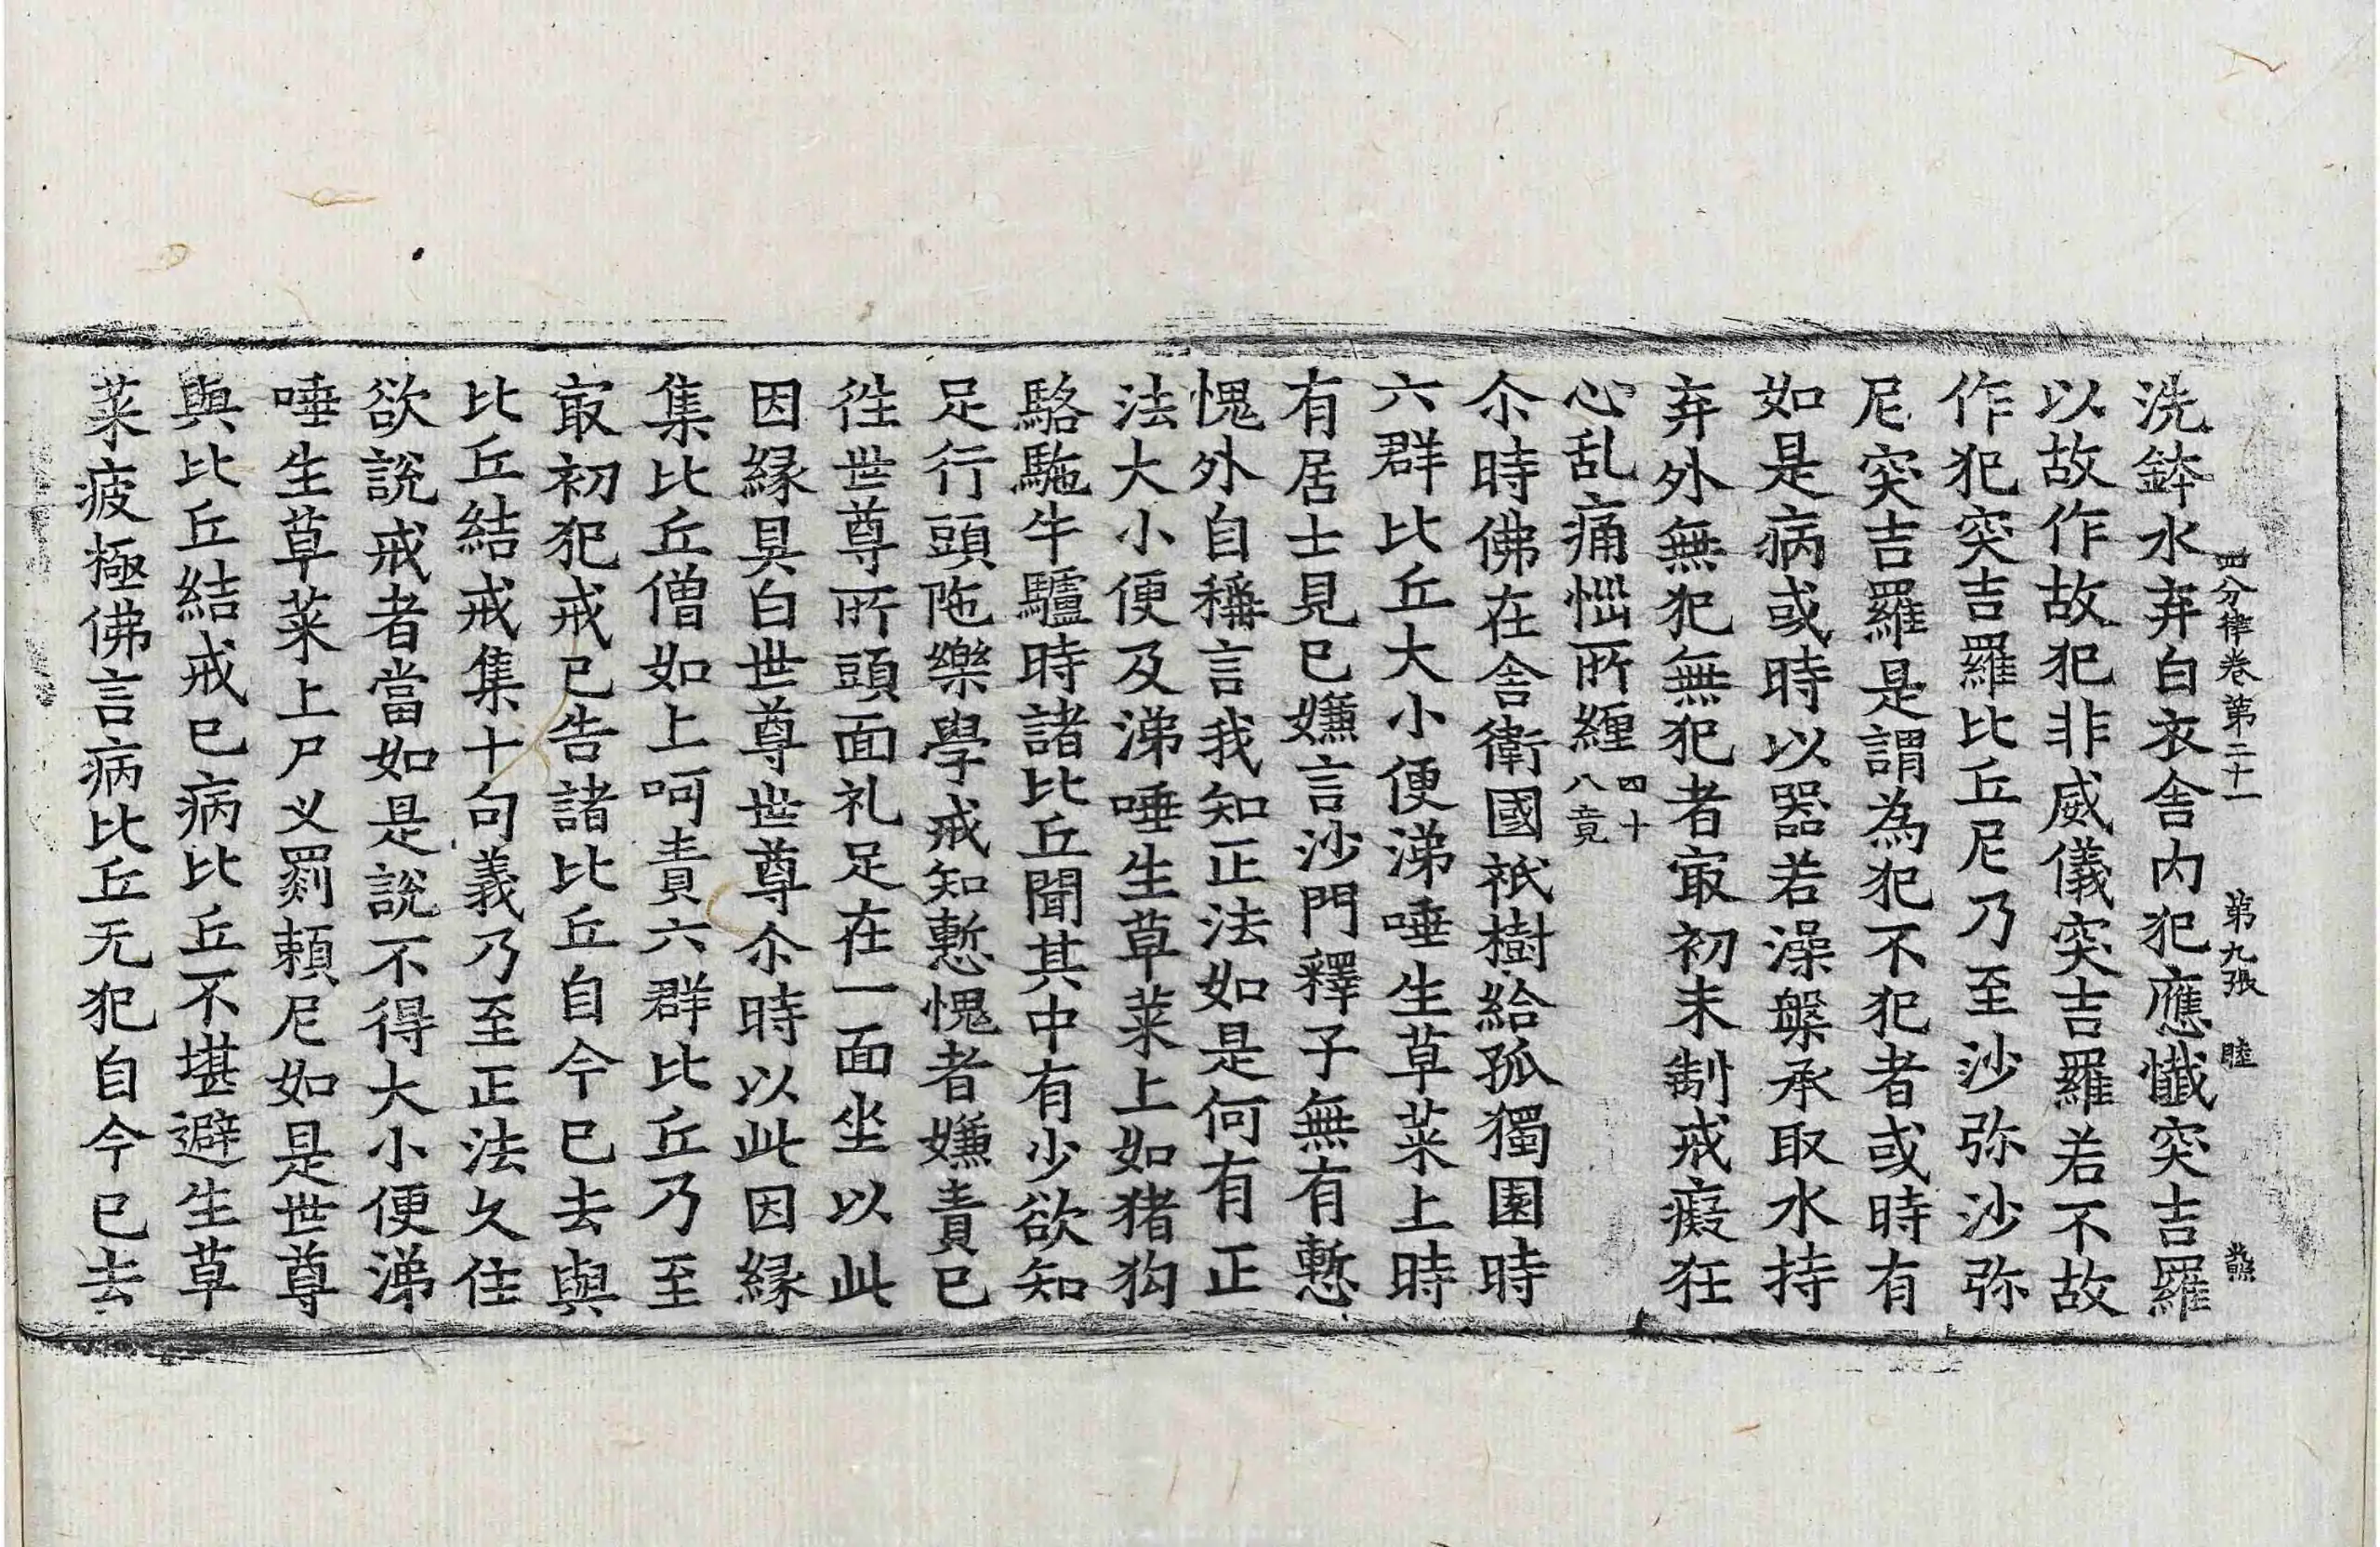 四分律卷第二十一 第九張 睦
洗鉢水弃白衣舍内犯應懺突吉羅
以故作故犯非威儀突吉羅若不故
作犯突吉羅比丘尼乃至沙弥沙弥
尼突吉羅是謂為犯不犯者或時有
如是病或時以器若澡槃承取水持
弃外無犯無犯者㝡初未制戒癡狂
心乱痛惱所纏四十八竟
尒時佛在舍衛國祇樹給孤獨園時
六群比丘大小便涕唾生草菜上時
有居士見已嫌言沙門釋子無有慙
愧外自稱言我知正法如是何有正
法大小便及涕唾生草菜上如猪狗
駱駞牛驢時諸比丘聞其中有少欲知
足行頭陁樂學戒知慙愧者嫌責已
徃世尊所頭面礼足在一面坐以此
因緣具白世尊世尊尒時以此因緣
集比丘僧如上呵責六群比丘乃至
㝡初犯戒已告諸比丘自今已去與
比丘結戒集十句義乃至正法久住
欲說戒者當如是說不得大小便涕
唾生草菜上尸叉罽賴尼如是世尊
與比丘結戒已病比丘不堪避生草
菜疲極佛言病比丘无犯自今已去